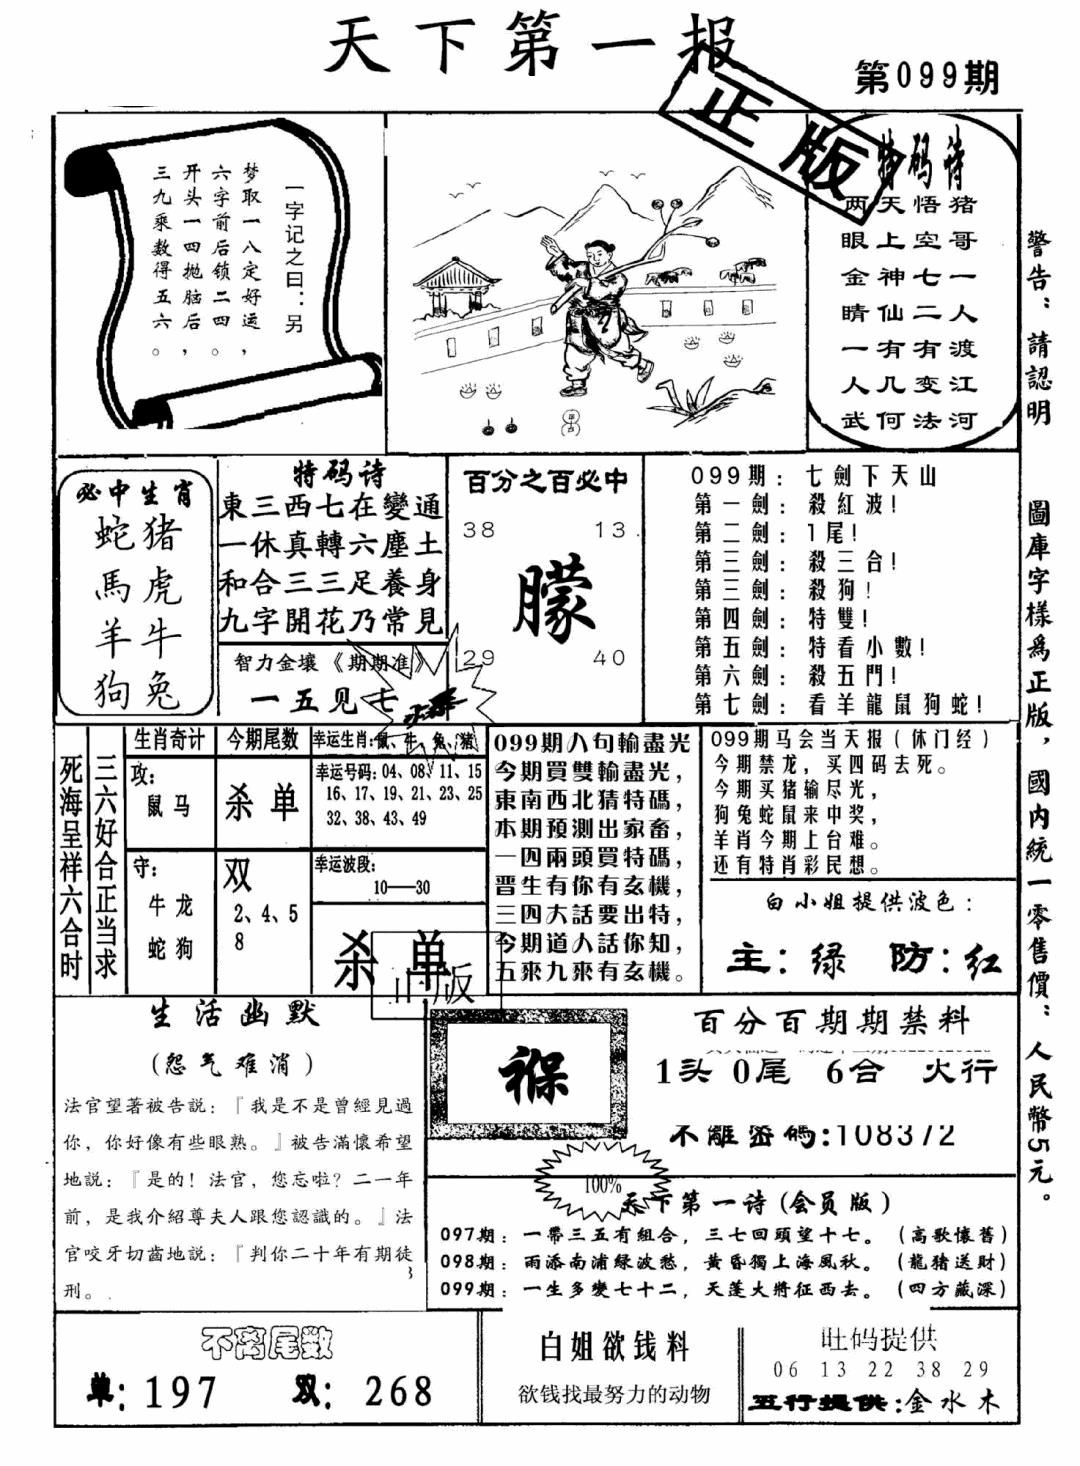 天下第一报
第099期
正版
一字记之曰：另
梦取一八定好运，
六字前后锁二四。
开头一四抛脑后，
三九乘数得五六。
特码诗
猪哥一人渡江河
悟空七二有变法
天上神仙有几何
两眼金睛一人武
警告：請認明圖庫字樣爲正版，國内統一零售價：人民幣5元。
必中生肖
蛇猪
馬虎
羊牛
狗兔
特码诗
東三西七在變通
一休真轉六塵土
和合三三足養身
九字開花乃常見
智力金壤《期期准》
一五见七
百分之百必中
38 13
朦
29 40
099期：七劍下天山
第一劍：殺紅波！
第二劍：1尾！
第三劍：殺三合！
第三劍：殺狗！
第四劍：特雙！
第五劍：特看小數！
第六劍：殺五門！
第七劍：看羊龍鼠狗蛇！
三六好合正当求
死海呈祥六合时
生肖奇计
攻：
鼠马
守：
牛龙
蛇狗
今期尾数
杀单
双
2、4、5
8
幸运生肖:鼠、牛、兔、猪
幸运号码:04、08、11、15
16、17、19、21、23、25
32、38、43、49
幸运波段:
10——30
杀单
正版
099期八句輸盡光
今期買雙輸盡光，
東南西北猜特碼，
本期預測出家畜，
一四兩頭買特碼，
晋生有你有玄機，
三四大話要出特，
今期道人話你知，
五來九來有玄機。
099期马会当天报（休门经）
今期禁龙，买四码去死。
今期买猪输尽光，
狗兔蛇鼠来中奖，
羊肖今期上台难。
还有特肖彩民想。
白小姐提供波色：
主：绿 防：红
生活幽默
(怨气难消)
法官望著被告説：『我是不是曾經見過
你，你好像有些眼熟。』被告滿懷希望
地説：『是的！法官，您忘啦？二一年
前，是我介紹尊夫人跟您認識的。』法
官咬牙切齒地説：『判你二十年有期徒
刑。
褓
百分百期期禁料
1头 0尾 6合 火行
不離密碼:108372
100%
天下第一诗(会员版)
097期：一帶三五有組合，三七回頭望十七。（高歌懷舊）
098期：雨添南浦绿波愁，黃昏獨上海風秋。（龍猪送財）
099期：一生多變七十二，天蓬大將征西去。（四方藏深）
不离尾数
单：197 双：268
白姐欲钱料
欲钱找最努力的动物
旺码提供
06 13 22 38 29
五行提供:金水木